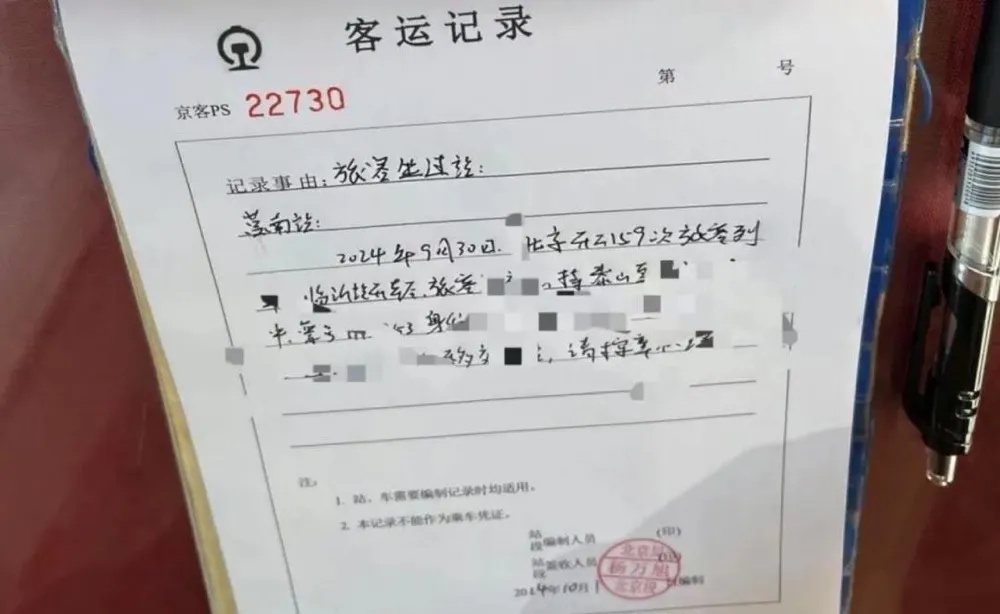 客运记录
第 号
京客PS 22730
记录事由:旅客坐过站:
莒南站:
2024年9月30日. 北京开Z159次旅客列
车 临沂站开车后,旅客 ,持泰山至
票 身份
移交 ,请按章办理
注:
1. 站、车需要编制记录时均适用。
2. 本记录不能作为乘车凭证。
站
段 编制人员 (印)
站
段 签收人员 (印)
2024年10月1 日编制
北京局
杨万旭
北京段